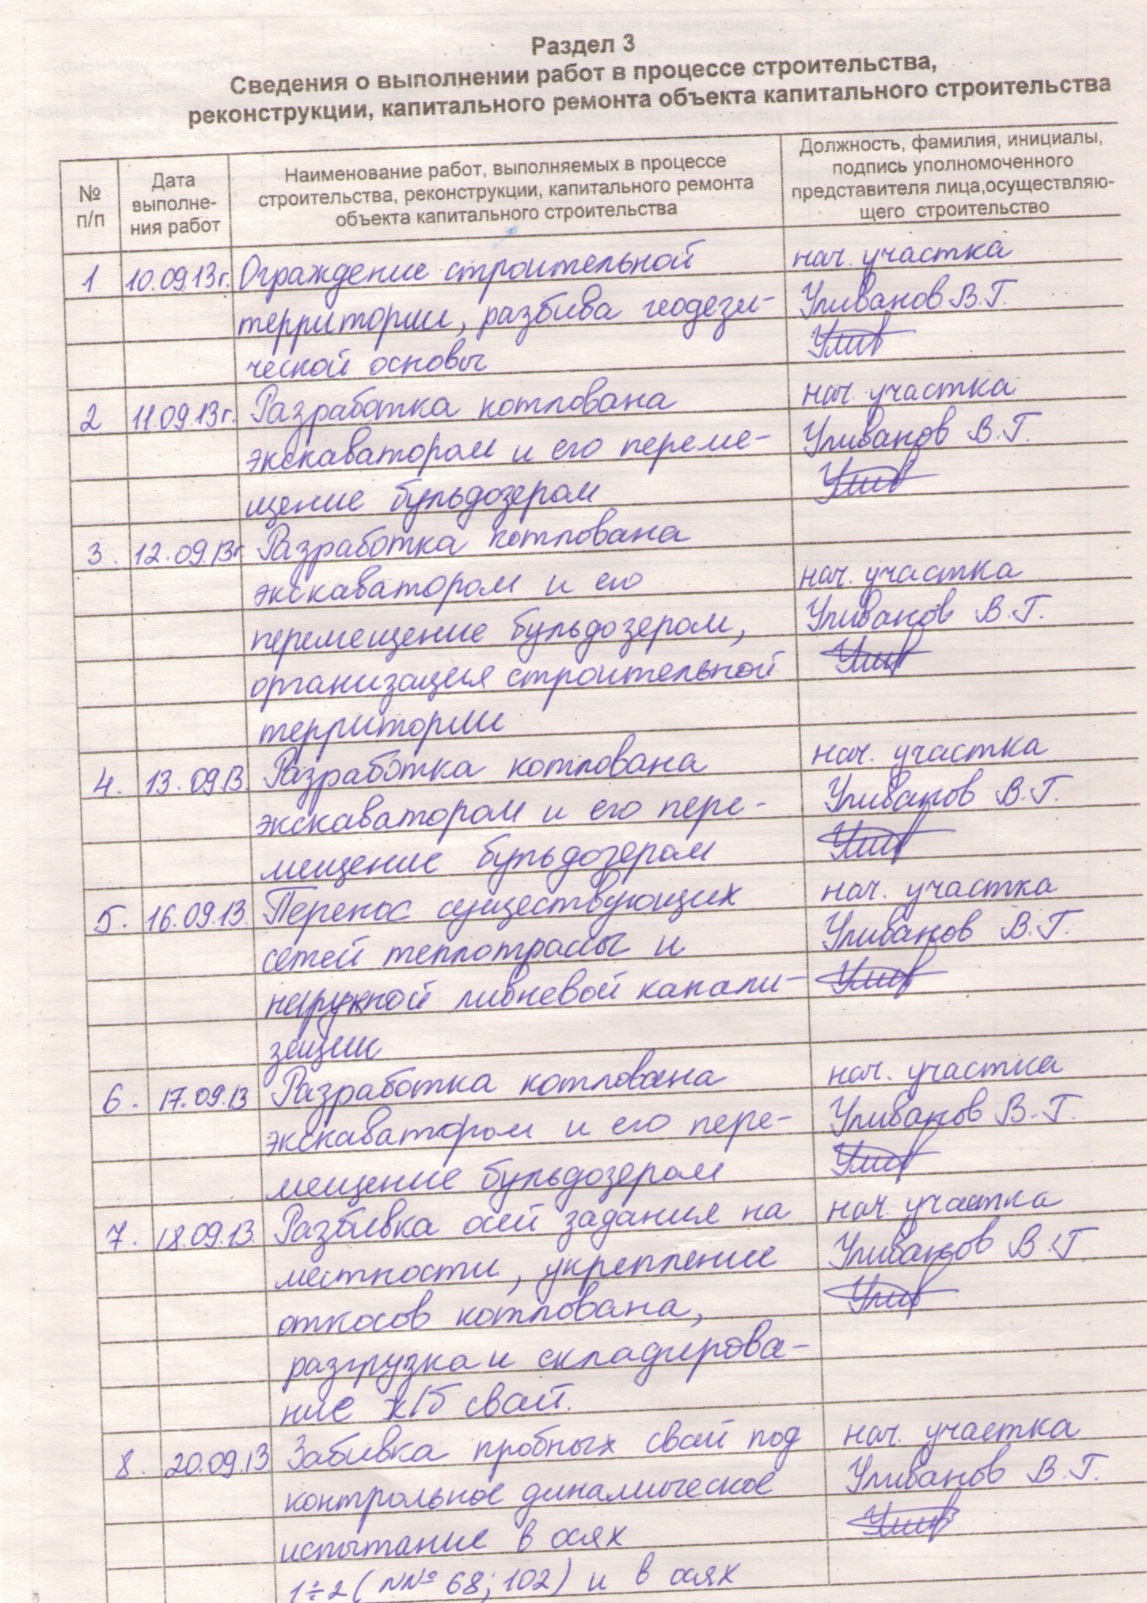 Раздел 3
Сведения о выполнении работ в процессе строительства,
реконструкции, капитального ремонта объекта капитального строительства
№ п/п
Дата выполне-
ния работ
Наименование работ, выполняемых в процессе
строительства, реконструкции, капитального ремонта
объекта капитального строительства
Должность, фамилия, инициалы,
подпись уполномоченного
представителя лица,осуществляю-
щего строительство
1 10.09.13г. Ограждение строительной нач. участка
территории, разбива геодези- Уливанов В.Г.
ческой основы
2 11.09.13г. Разработка котлована нач. участка
экскаватором и его переме- Уливанов В.Г.
щение бульдозером
3. 12.09.13г Разработка котлована
экскаватором и его нач. участка
перемещение бульдозером, Уливанов В.Г.
организация строительной
территории
4. 13.09.13 Разработка котлована нач. участка
экскаватором и его пере- Уливанов В.Г.
мещение бульдозером
5. 16.09.13. Перенос существующих нач. участка
сетей теплотрассы и Уливанов В.Г.
наружной ливневой канали-
зации
6. 17.09.13 Разработка котлована нач. участка
экскаватором и его пере- Уливанов В.Г.
мещение бульдозером
7. 18.09.13. Разбивка осей задания на нач. участка
местности, укрепление Уливанов В.Г.
откосов котлована,
разгрузка и складирова-
ние ж/б свай.
8. 20.09.13 Забивка пробных свай под нач. участка
контрольное динамическое Уливанов В.Г.
испытание в осях
1÷2 (№№ 68; 102) и в осях